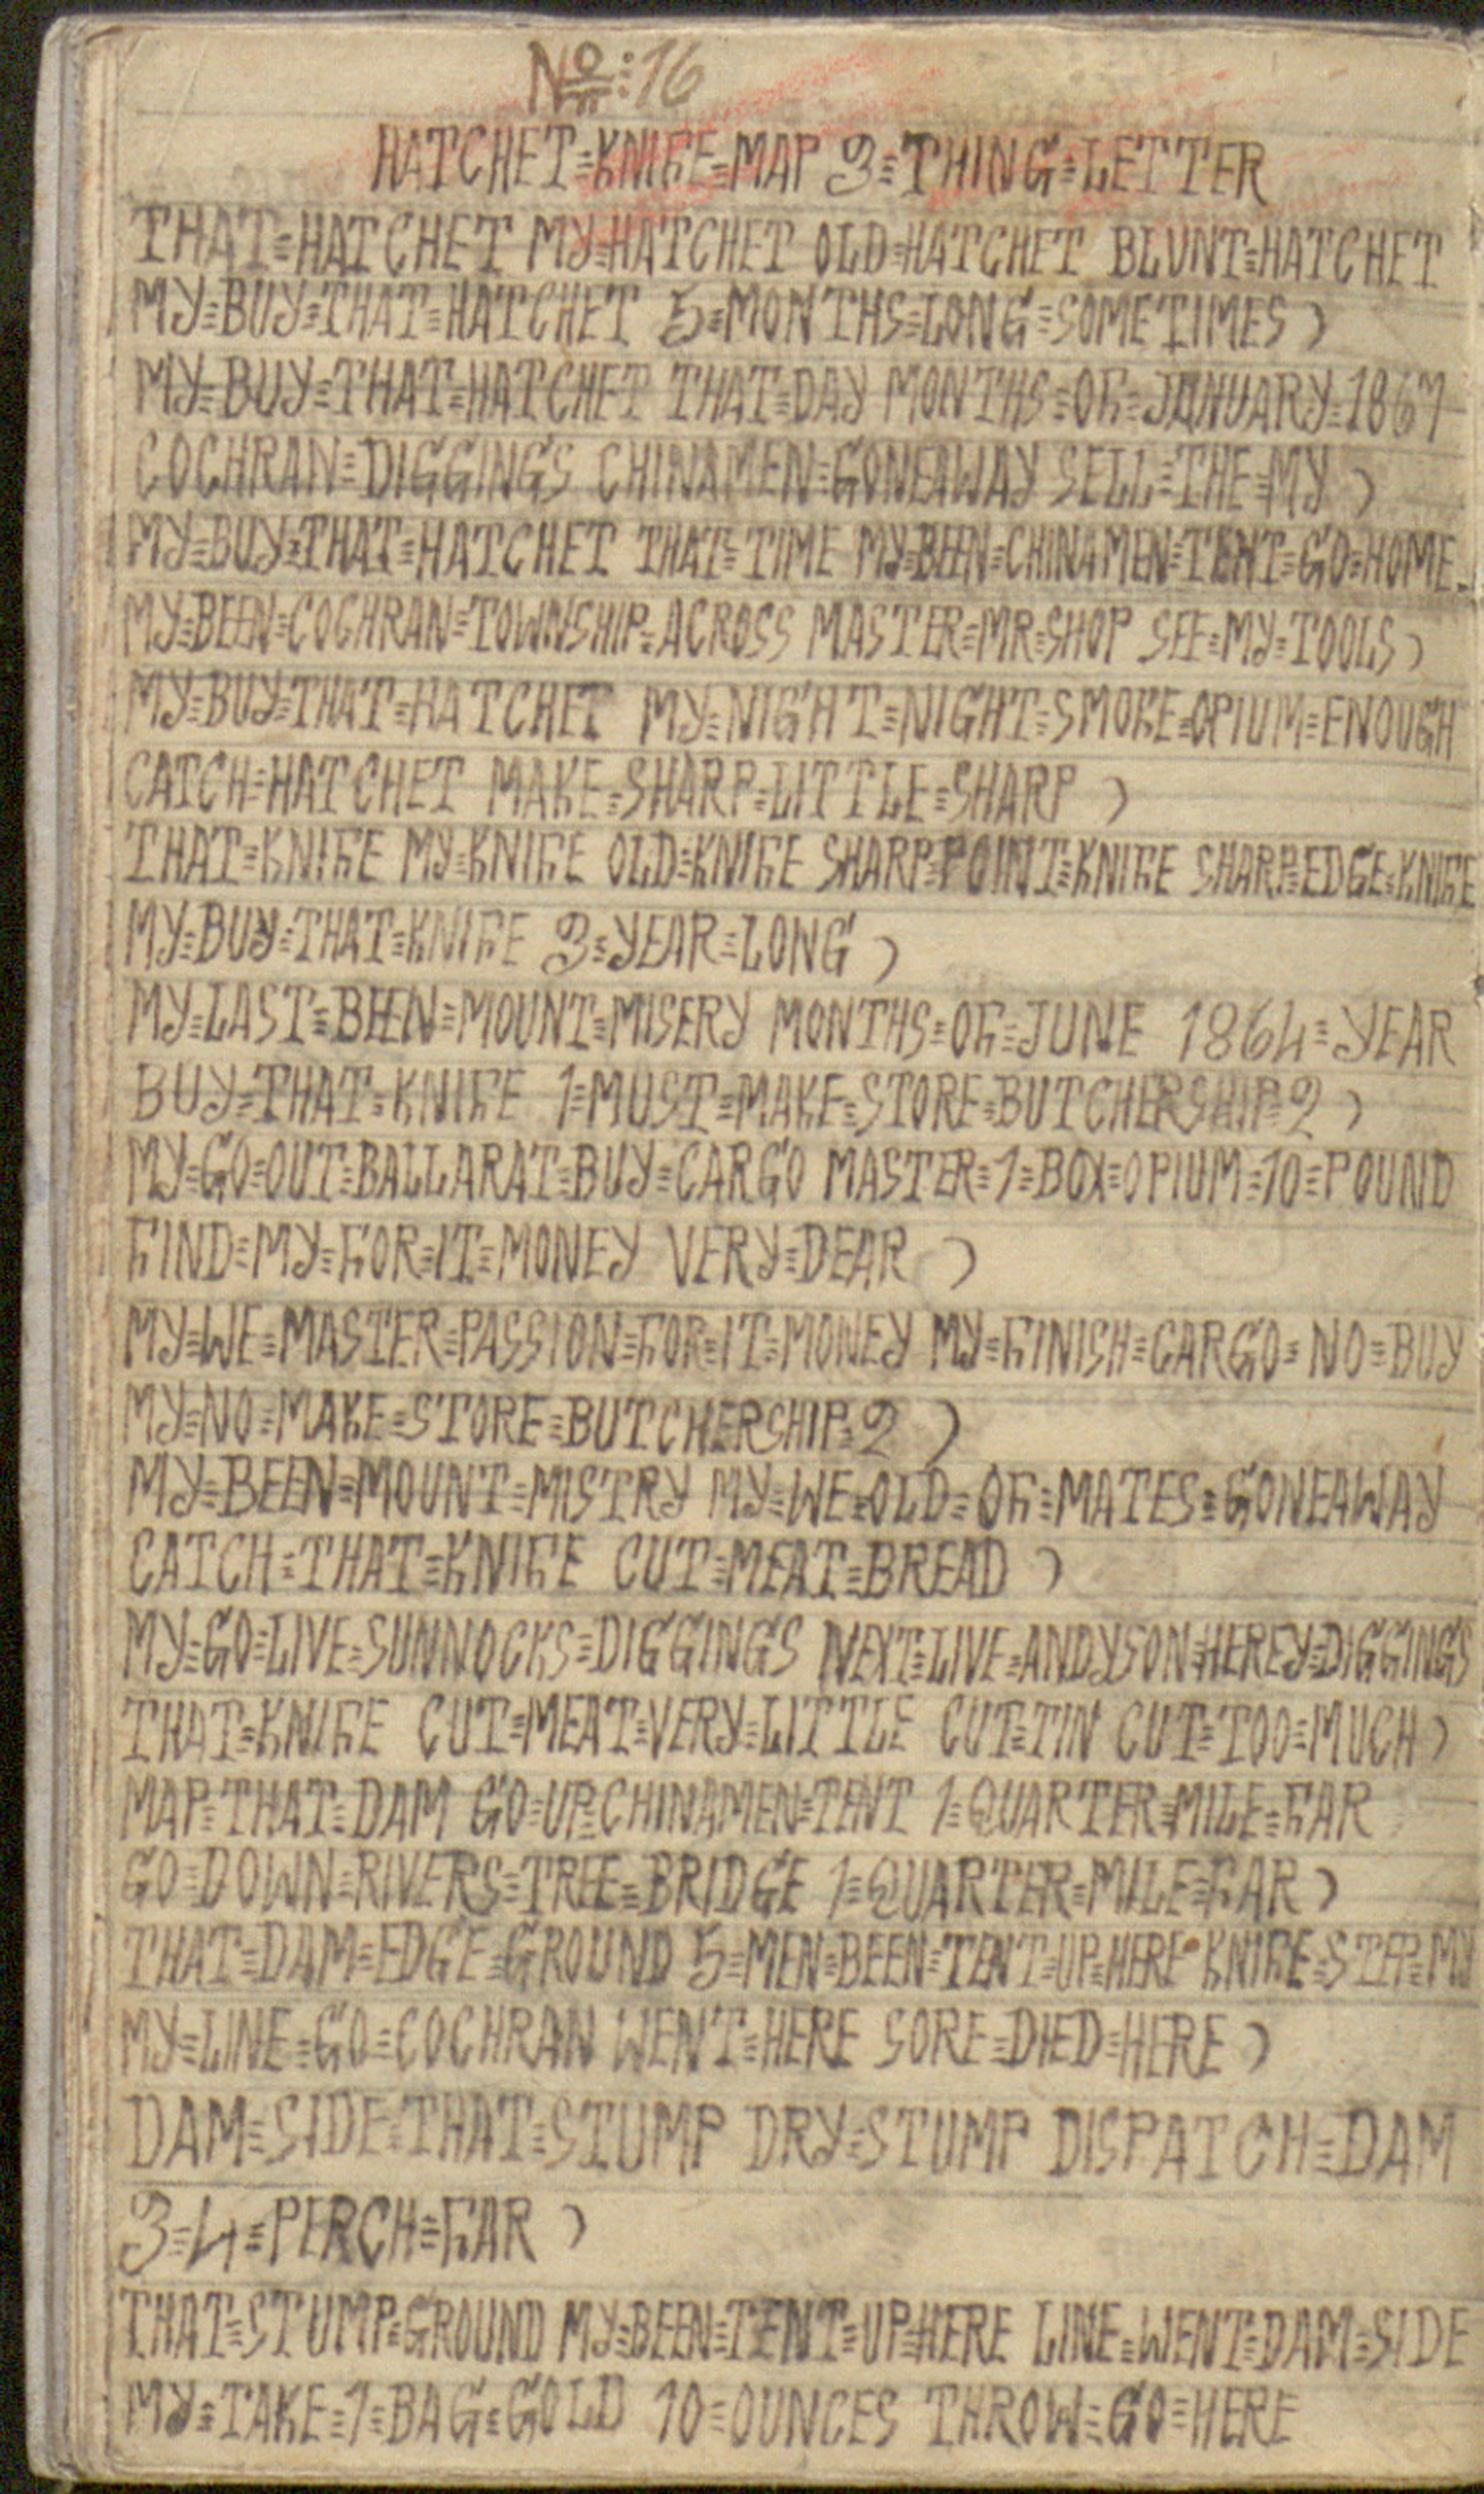 No:16
HATCHET=KNIFE=MAP 3=THING=LETTER
THAT=HATCHET MY=HATCHET OLD=HATCHET BLUNT=HATCHET
MY=BUY=THAT=HATCHET 5=MONTHS=LONG=SOMETIMES)
MY=BUY=THAT=HATCHET THAT=DAY MONTHS=OF=JANUARY=1867
COCHRAN=DIGGINGS CHINAMEN=GONEAWAY SELL=THE=MY)
MY=BUY=THAT=HATCHET THAT=TIME MY=BEEN=CHINAMEN=TENT=GO=HOME
MY=BEEN=COCHRAN=TOWNSHIP=ACROSS MASTER=MR=SHOP SEE=MY=TOOLS)
MY=BUY=THAT=HATCHET MY=NIGHT=NIGHT=SMOKE=OPIUM=ENOUGH
CATCH=HATCHET MAKE=SHARP=LITTLE=SHARP)
THAT=KNIFE MY=KNIFE OLD=KNIFE SHARP=POINT=KNIFE SHARP=EDGE=KNIFE
MY=BUY=THAT=KNIFE 3=YEAR=LONG)
MY=LAST=BEEN=MOUNT=MISERY MONTHS=OF=JUNE 1864=YEAR
BUY=THAT=KNIFE 1=MUST=MAKE=STORE=BUTCHERSHIP=2)
MY=GO=OUT=BALLARAT=BUY=CARGO MASTER=1=BOX=OPIUM=10=POUND
FIND=MY=FOR=IT=MONEY VERY=DEAR)
MY=WE=MASTER=PASSION=FOR=IT=MONEY MY=FINISH=CARGO=NO=BUY
MY=NO=MAKE=STORE=BUTCHERSHIP=2)
MY=BEEN=MOUNT=MISTRY MY=WE=OLD=OF=MATES=GONEAWAY
CATCH=THAT=KNIFE CUT=MEAT=BREAD)
MY=GO=LIVE=SUNNOCKS=DIGGINGS NEXT=LIVE=ANDYSON=HEREY=DIGGINGS
THAT=KNIFE CUT=MEAT=VERY=LITTLE CUT=TIN CUT=TOO=MUCH)
MAP=THAT=DAM GO=UP=CHINAMEN=TENT 1=QUARTER=MILE=FAR
GO=DOWN=RIVERS=TREE=BRIDGE 1=QUARTER=MILE=FAR)
THAT=DAM=EDGE=GROUND 5=MEN=BEEN=TENT=UP=HERE KNIFE=STEP=MY
MY=LINE=GO=COCHRAN WENT=HERE SORE=DIED=HERE)
DAM=SIDE=THAT=STUMP DRY=STUMP DISPATCH=DAM
3=4=PERCH=FAR)
THAT=STUMP=GROUND MY=BEEN=TENT=UP=HERE LINE=WENT=DAM=SIDE
MY=TAKE=1=BAG=GOLD 10=OUNCES THROW=GO=HERE